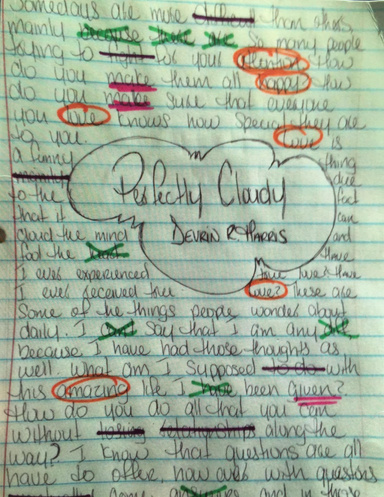 Somedays are more than others
mainly because there are so many people
trying to for your attention. How
do you make them all happy? How
do you make sure that everyone
you love knows how special they are
to you. Love is
a funny thing
due
to the fact
that it can
cloud the mind and
fool the Have
Perfectly Cloudy
DEVRIN R. HARRIS
I ever experienced true love? Have
I ever received true love? These are
Some of the things people wonder about
daily. I say that I am any
because I have had those thoughts as
well. What am I supposed to do with
this amazing life I have been given?
How do you do all that you can
without losing relationships along the
way? I know that questions are all
have to offer, how ever with questions
and in those